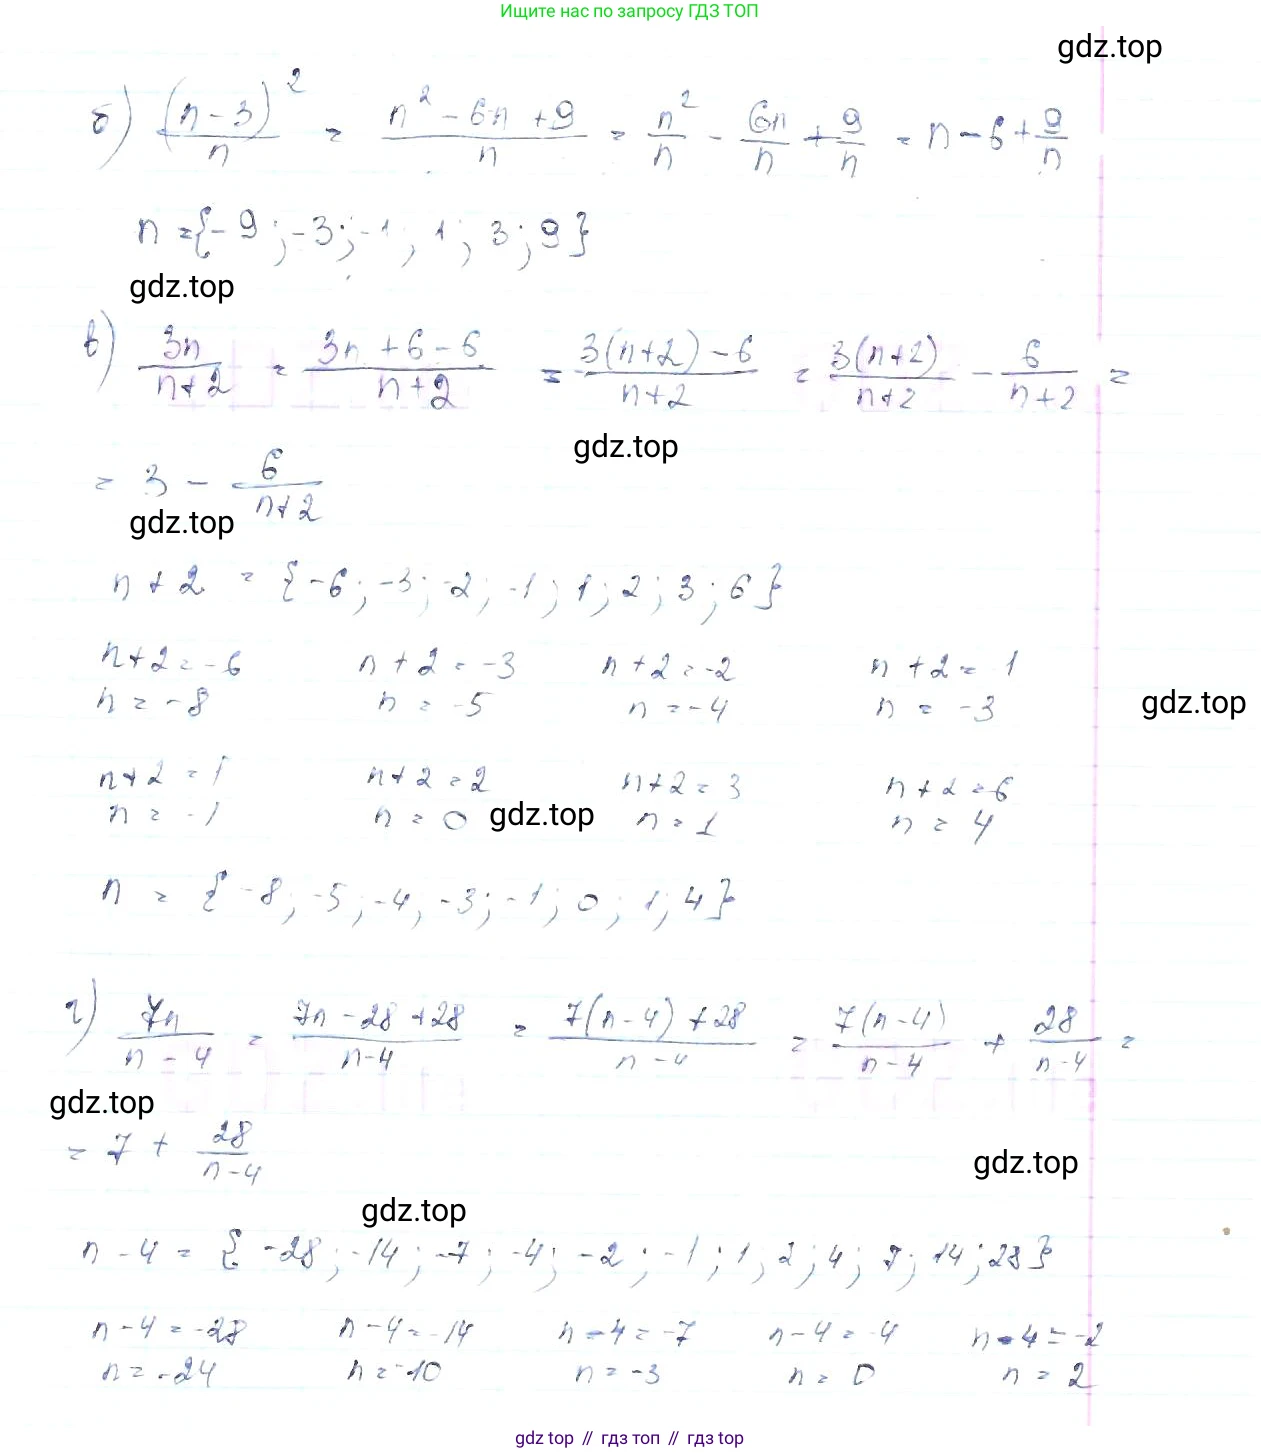 Ищите нас по запросу ГДЗ ТОП
gdz.top
б) (n-3)²/n = (n² - 6n + 9)/n = n²/n - 6n/n + 9/n = n - 6 + 9/n
n = {-9; -3; -1; 1; 3; 9}
gdz.top
в) 3n/(n+2) = (3n + 6 - 6)/(n+2) = (3(n+2) - 6)/(n+2) = 3(n+2)/(n+2) - 6/(n+2) =
gdz.top
= 3 - 6/(n+2)
gdz.top
n + 2 = {-6; -3; -2; -1; 1; 2; 3; 6}
n+2 = -6 n + 2 = -3 n + 2 = -2 n + 2 = -1
n = -8 n = -5 n = -4 n = -3
gdz.top
n+2 = 1 n+2 = 2 n+2 = 3 n+2 = 6
n = -1 n = 0 gdz.top n = 1 n = 4
n = {-8; -5; -4; -3; -1; 0; 1; 4}
г) 7n/(n-4) = (7n - 28 + 28)/(n-4) = (7(n-4) + 28)/(n-4) = 7(n-4)/(n-4) + 28/(n-4) =
gdz.top
= 7 + 28/(n-4)
gdz.top
gdz.top
n - 4 = {-28; -14; -7; -4; -2; -1; 1; 2; 4; 7; 14; 28}
n-4 = -28 n-4 = -14 n-4 = -7 n-4 = -4 n-4 = -2
n = -24 n = -10 n = -3 n = 0 n = 2
gdz.top // гдз топ // gdz top